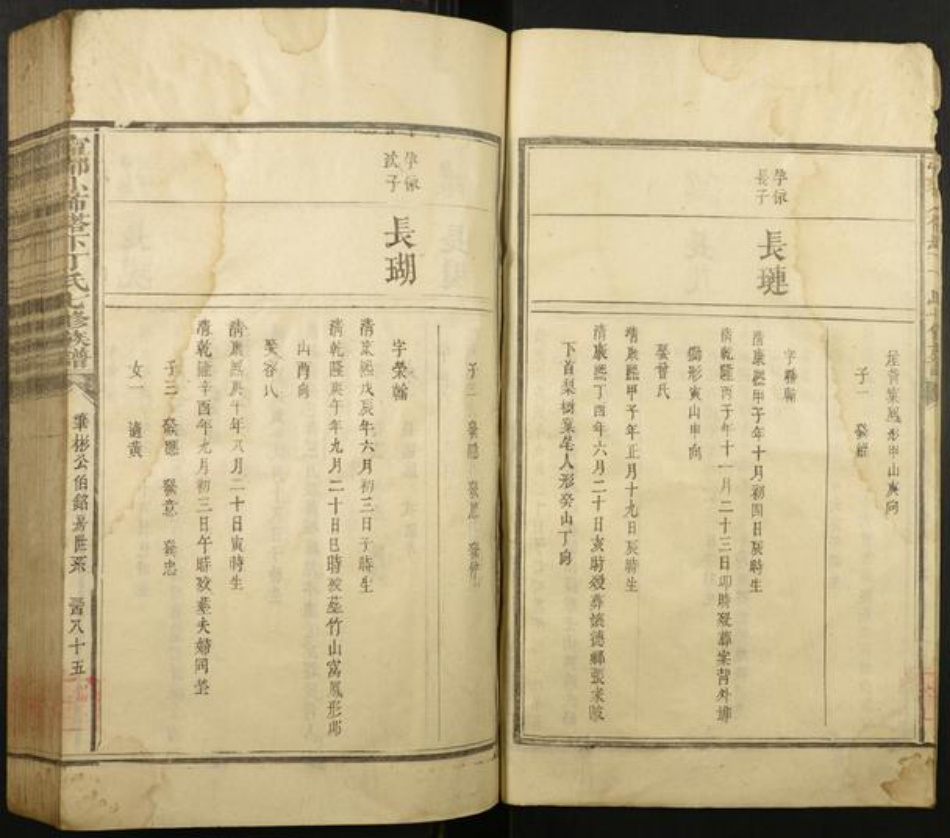 孕依長子
長璉
形甲山庚向
子一 發雄
字
清康熙甲子年十月初四日辰時生
清乾隆丙子年十一月二十三日卯時歿葬案背外排
形寅山申向
娶曾氏
清康熙甲子年正月十九日辰時生
清康熙丁酉年六月二十日亥時歿葬懷德鄉張家陂
下首梨樹窠 人形癸山丁向
孕依次子
長瑚
子三
字榮
清康熙戊辰年六月初三日子時生
清乾隆庚午年九月二十日巳時歿葬竹山窩鳳形卯
山酉向
娶谷氏
清康熙庚午年八月二十日寅時生
清乾隆辛酉年九月初三日午時歿葬夫婦同塋
子三 發應 發意 發忠
女一 適黃
雩都小布塔下丁氏七修族譜
華彬公伯銘房世系 晉八十五